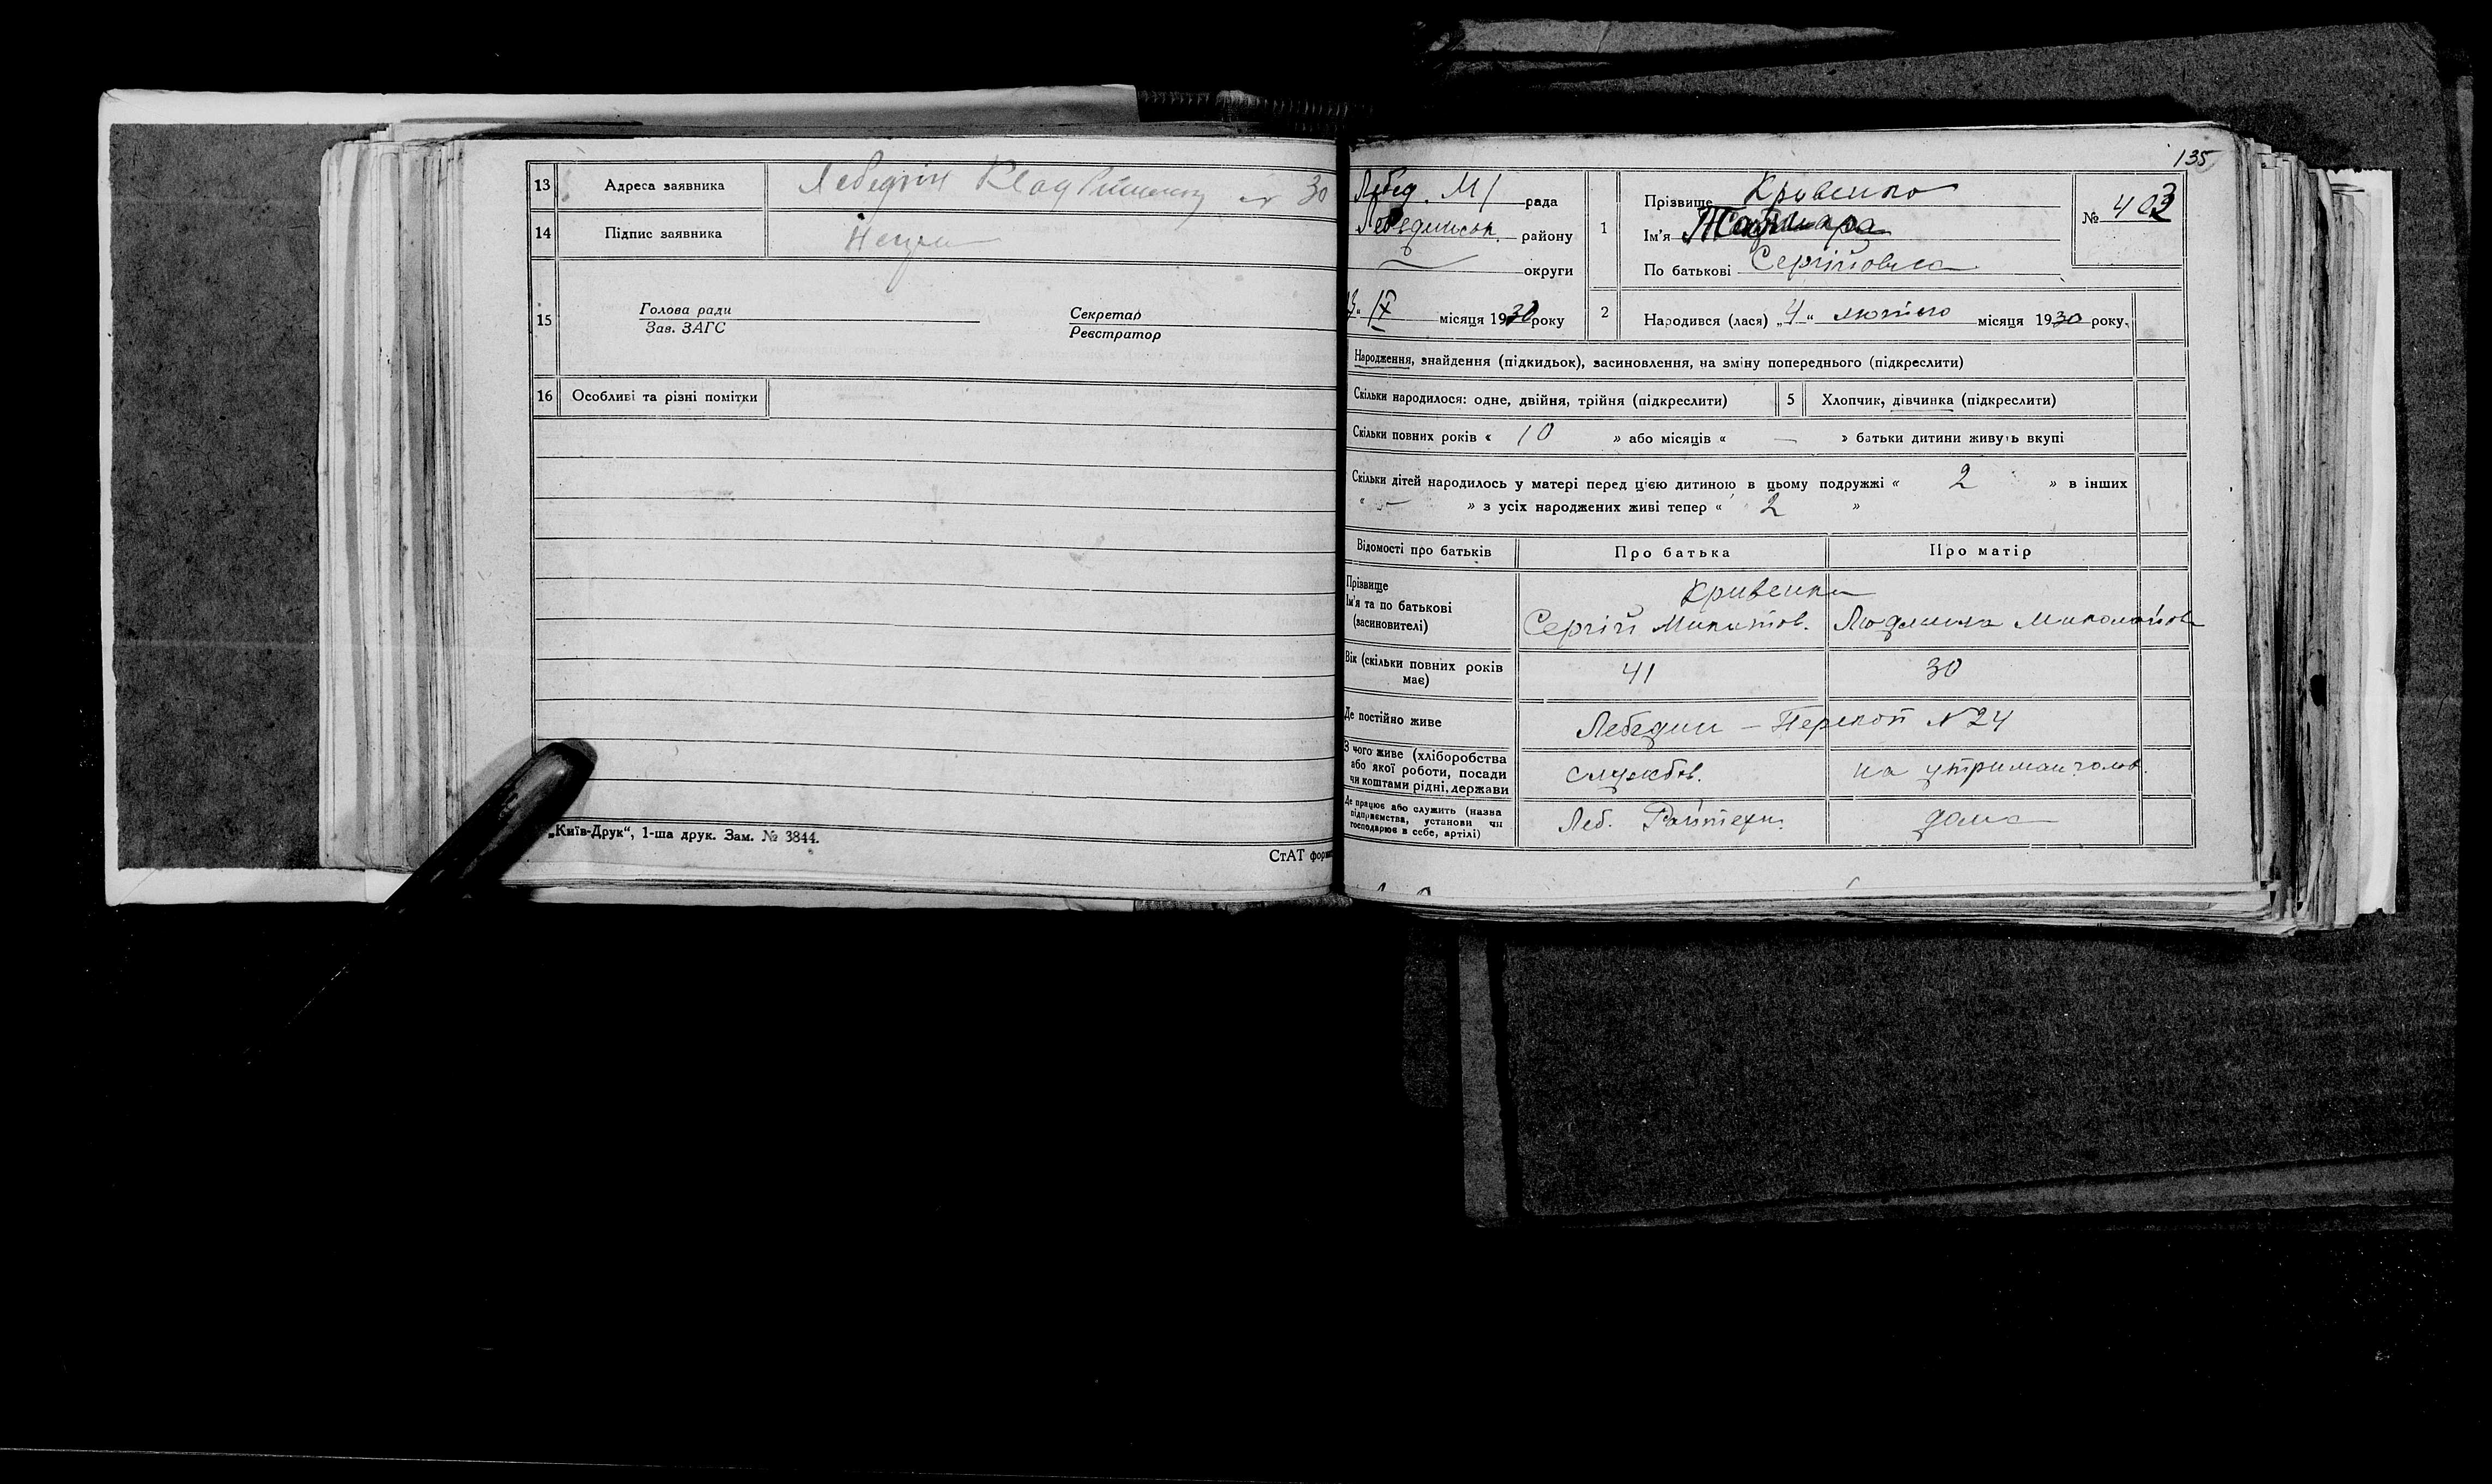 13 Адреса заявника Лебедин 30
14 Підпис заявника
15 Голова ради Секретар
Зав. ЗАГС Реєстратор
16 Особливі та різні помітки
„Київ-Друк“, 1-ша друк. Зам. № 3844.
СтАТ
135
Лебед. М/ рада
Лебединськ. району
округи
IX місяця 1930 року
1 Прізвище Кривенко
Ім'я
По батькові Сергійовна
№ 403
2 Народився (лася) „4“ лютого місяця 1930 року.
Народження, знайдення (підкидьок), засиновлення, на зміну попереднього (підкреслити)
Скільки народилося: одне, двійня, трійня (підкреслити) 5 Хлопчик, дівчинка (підкреслити)
Скільки повних років « 10 » або місяців « — » батьки дитини живуть вкупі
Скільки дітей народилось у матері перед цією дитиною в цьому подружжі « 2 » в інших
« — » з усіх народжених живі тепер « 2 »
Відомості про батьків Про батька Про матір
Прізвище Кривенки
Ім'я та по батькові
(засиновителі) Сергій Микитов. Людмила Миколайов
Вік (скільки повних років має) 41 30
Де постійно живе Лебедин — Перекоп № 24
З чого живе (хліборобства
або якої роботи, посади
чи коштами рідні, держави службов. на утриман. чолов.
Де працює або служить (назва
підприємства, установи чи
господарює в себе, артілі) Леб. дома